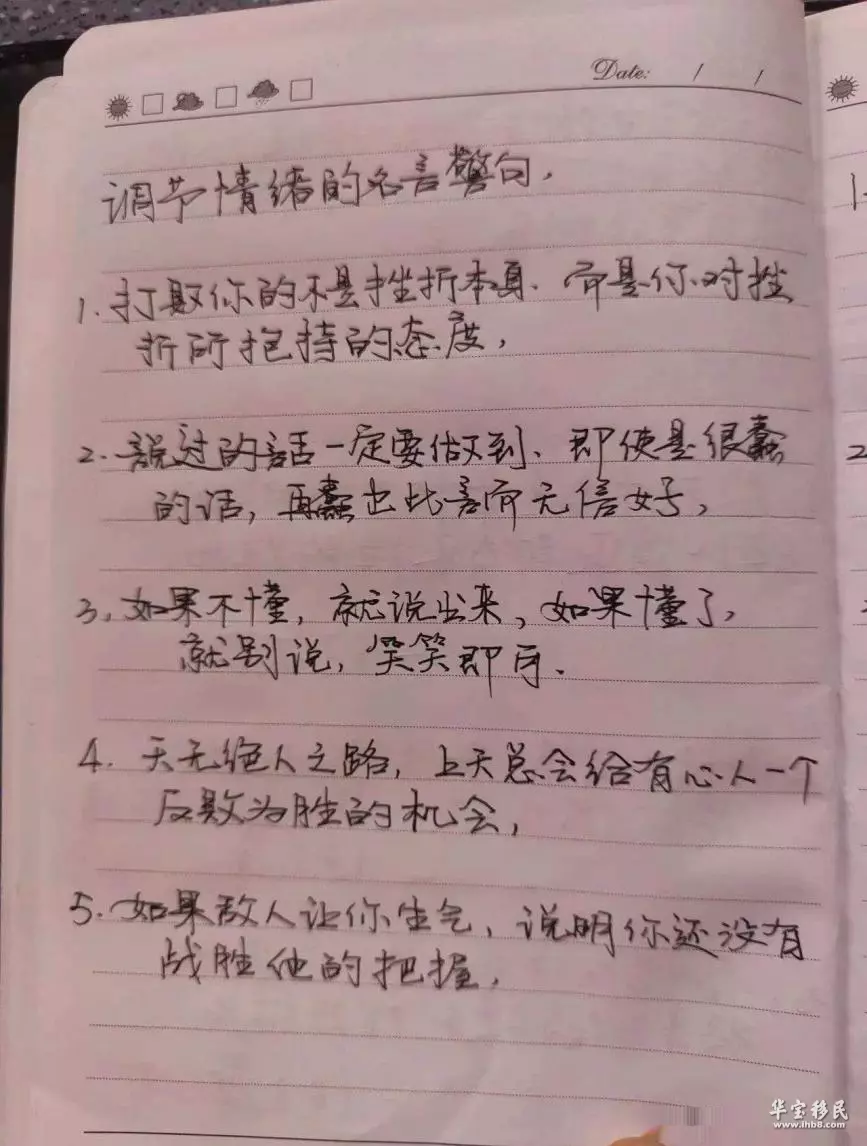 Date: / /
调节情绪的名言警句,
1. 打败你的不是挫折本身、而是你对挫
折所抱持的态度,
2. 說过的話一定要做到、即使是很蠢
的话, 再蠢也比言而无信好,
3, 如果不懂, 就说出来, 如果懂了,
就别说, 笑笑即可.
4. 天无绝人之路, 上天总会给有心人一个
反败为胜的机会,
5. 如果敌人让你生气、说明你还没有
战胜他的把握,
华宝移民
www.ihb8.com